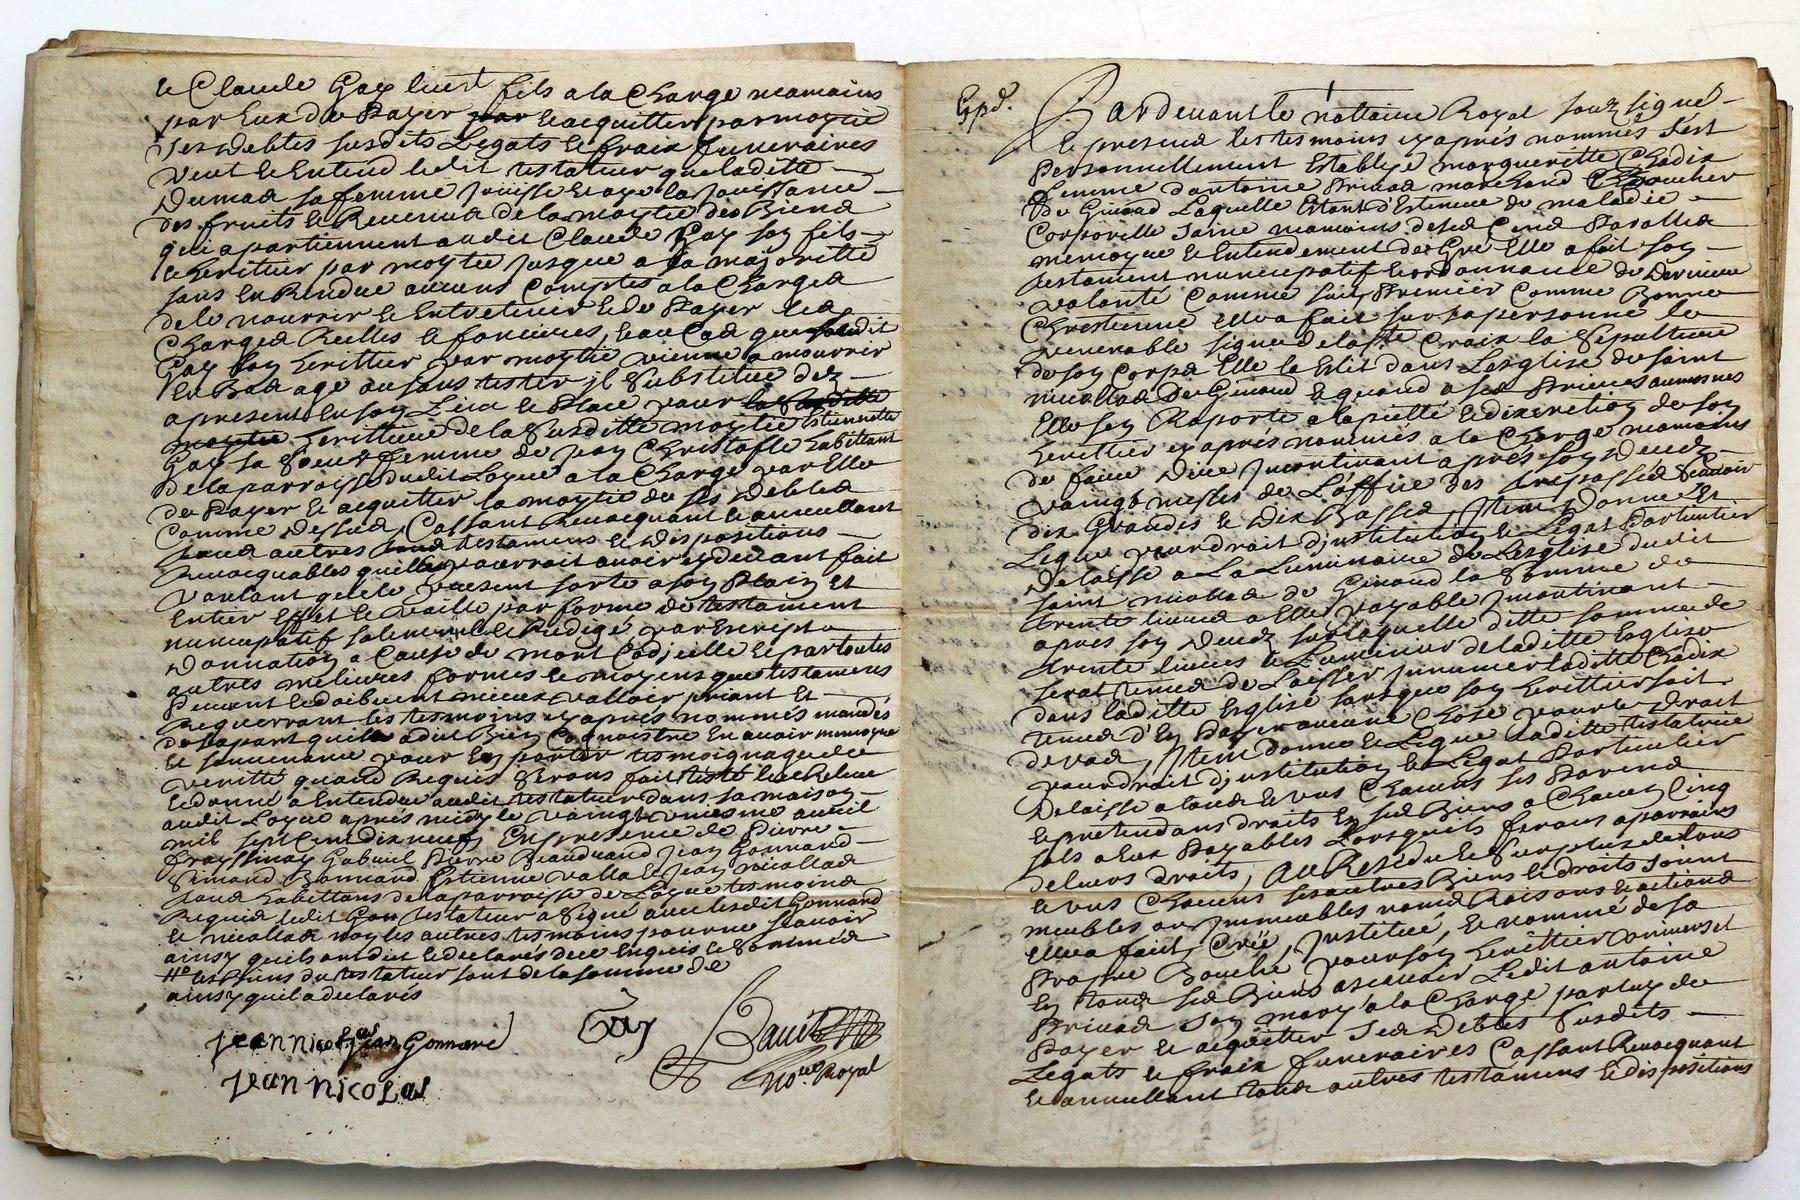 et Claude Gay leurt fils a la charge neamoins
par eux de payer et acquitter par moytié
ses debtes susdits legats et fraix funeraires
veut et entend ledit testateur que laditte
Dumas sa femme jouisse et aye la jouissance
des fruits et revenus de la moytié des biens
qui apartiennent audit Claude Gay son fils
et heritier par moytié jusque a sa majoritté
sans en rendre aucuns comptes a la charge
de le nourrir et entretenir et de payer les
charges reelles et foncieres, et au cas que sondit
Gay son herittier par moytié vienne a mourrir
en bas age ou sans tester il substitue dez
apresent en son lieu et place pour la susditte
moytié herittiere de la susditte moytié Estiennette
Gay sa soeur femme de Jean Christofle habittant
de la parroisse dudit Loyue a la charge par elle
de payer et acquitter la moytié de ses debtes
comme dessus, cassant revocquant et annullant
tous autres testamens et dispositions
revocquables quil pourrait avoir cy devant fait
voulant que le present sorte a son plain et
entier effet et vaille par forme de testament
nuncupatif solemnel et redigé par escript
donnation a cause de mort codicille et par toutes
autres melieures formes et moyens que testamens
peuvent et doibvent mieux valloir priant et
requerrant les tesmoins cy après nommés mandés
de sa part quil a dit bien cognoistre en avoir memoyre
et souvenance pour en porter tesmoignage de
verité quand requis seront fait leu et releu
et donné a entendre audit testateur dans sa maison
audit Loyue après midy le vaingt uniesme avril
mil sept cent dix neuf, en presence de Pierre
Frayssinay Gabriel Pierre Beaudrand Jean Gonnard
Simand Bonnard Estienne Valla et Jean Nicollas
tous habittans de la parroisse de Loyue tesmoins
requis ledit Gay testateur a signé avec lesdit Gonnard
et Nicollas non les autres tesmoins pour ne sçavoir
ainsy quils ont dit et declarés de ce enquis et sommés
et les biens du testateur sont de la somme de
ainsy quil a declarés
jean nicolas jean Gonnard
Gay
jean nicolas
no.re Royal
Expd.
Pardevant le nottaire Royal soubzsigné
et presens les tesmoins cy après nommés s'est
personnellement establye Margueritte Chadix
femme d'Antoine Privas marchand boucher
de Givord laquelle estant d'estenue de maladie
corporelle saine neamoins de ses cinq
memoyre et entendement de gré elle a fait son
testament nuncupatif et ordonnance de derniere
volonté comme suit, premier comme bonne
chrestienne elle a fait sur sa personne le
venerable signe de la ste croix la sepulture
de son corps elle la eslit dans l'esglise de saint
Nicollas de Givord et quand a ses prieres aumosnes
elle s'en raporte a la pieté et discretion de son
herittier cy après nommés a la charge neamoins
de faire dire incontinant après son decedz
vaingt messes de l'office des trepassés sçavoir
dix grandes et dix basses, item donne et
legue pour droit d'institution et legat particulier
delaisse a la luminaire de l'esglise dudit
saint Nicollas de Givord la somme de
trente livres a elle payable incontinant
après son decedz sur laquelle ditte somme de
trente livres le luminier de laditte esglise
serat tenus de laisser inhumer laditte Chadix
dans laditte esglise sans que son herittier soit
tenus d'en payer aucune chose pour le droit
de vas, item donne et legue laditte testatrice
pour droit d'institution et legat particulier
delaisse a tous et uns chacuns ses parens
et pretendans droits en ses biens a chacun cinq
sols a eux payables lorsquils feront aparroir
de leurs droits, au residu et surplus de tous
et uns chacuns ses autres biens et droits soient
meubles ou immeubles noms raisons et actions
elle a fait, créé, institué, et nommé de sa
propre bouche pour son herittier universel
en tous ses biens asçavoir ledit Antoine
Privas son mary a la charge par luy de
payer et acquitter ses debtes susdits
legats et fraix funeraires cassant revocquant
et annullant tous autres testamens et dispositions